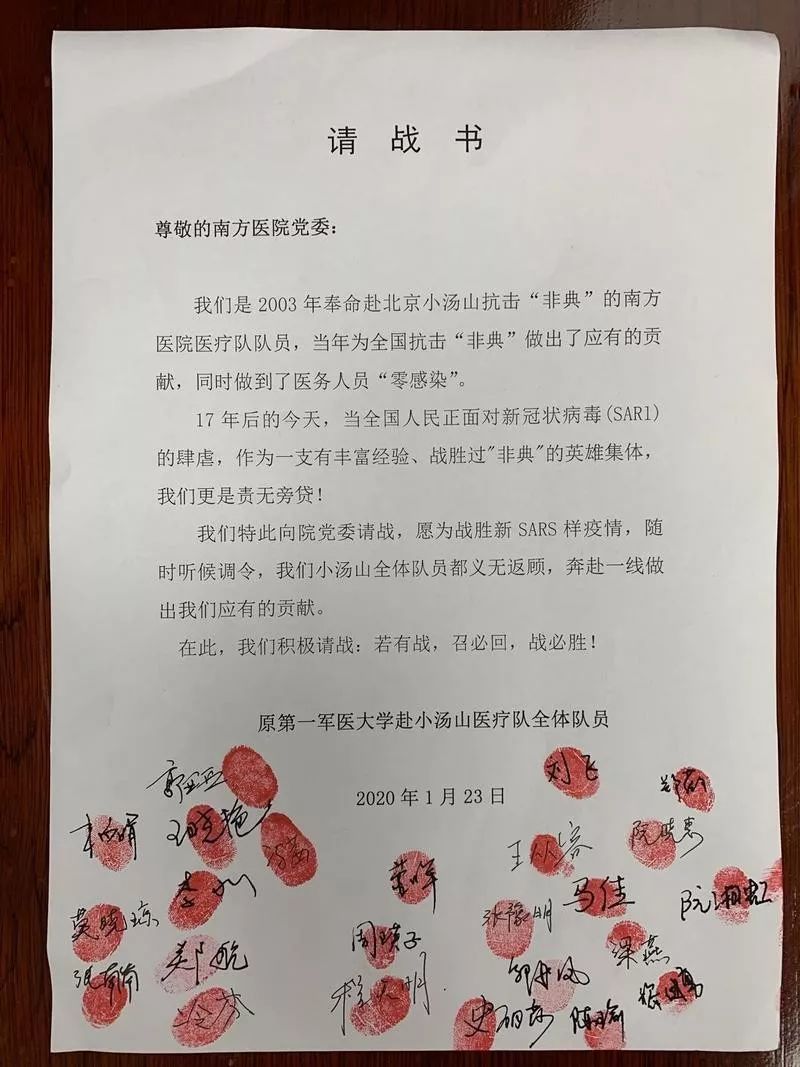 请战书
尊敬的南方医院党委：
我们是 2003 年奉命赴北京小汤山抗击“非典”的南方
医院医疗队队员，当年为全国抗击“非典”做出了应有的贡
献，同时做到了医务人员“零感染”。
17 年后的今天，当全国人民正面对新冠状病毒(SARI)
的肆虐，作为一支有丰富经验、战胜过"非典"的英雄集体，
我们更是责无旁贷！
我们特此向院党委请战，愿为战胜新 SARS 样疫情，随
时听候调令，我们小汤山全体队员都义无返顾，奔赴一线做
出我们应有的贡献。
在此，我们积极请战：若有战，召必回，战必胜！
原第一军医大学赴小汤山医疗队全体队员
2020 年 1 月 23 日
刘飞
王晓艳
阮晓惠
王从容
李川
马佳
阮湘虹
莫晓琼
张豫明
郑航
周瑛子
梁燕
张南南
冷芬